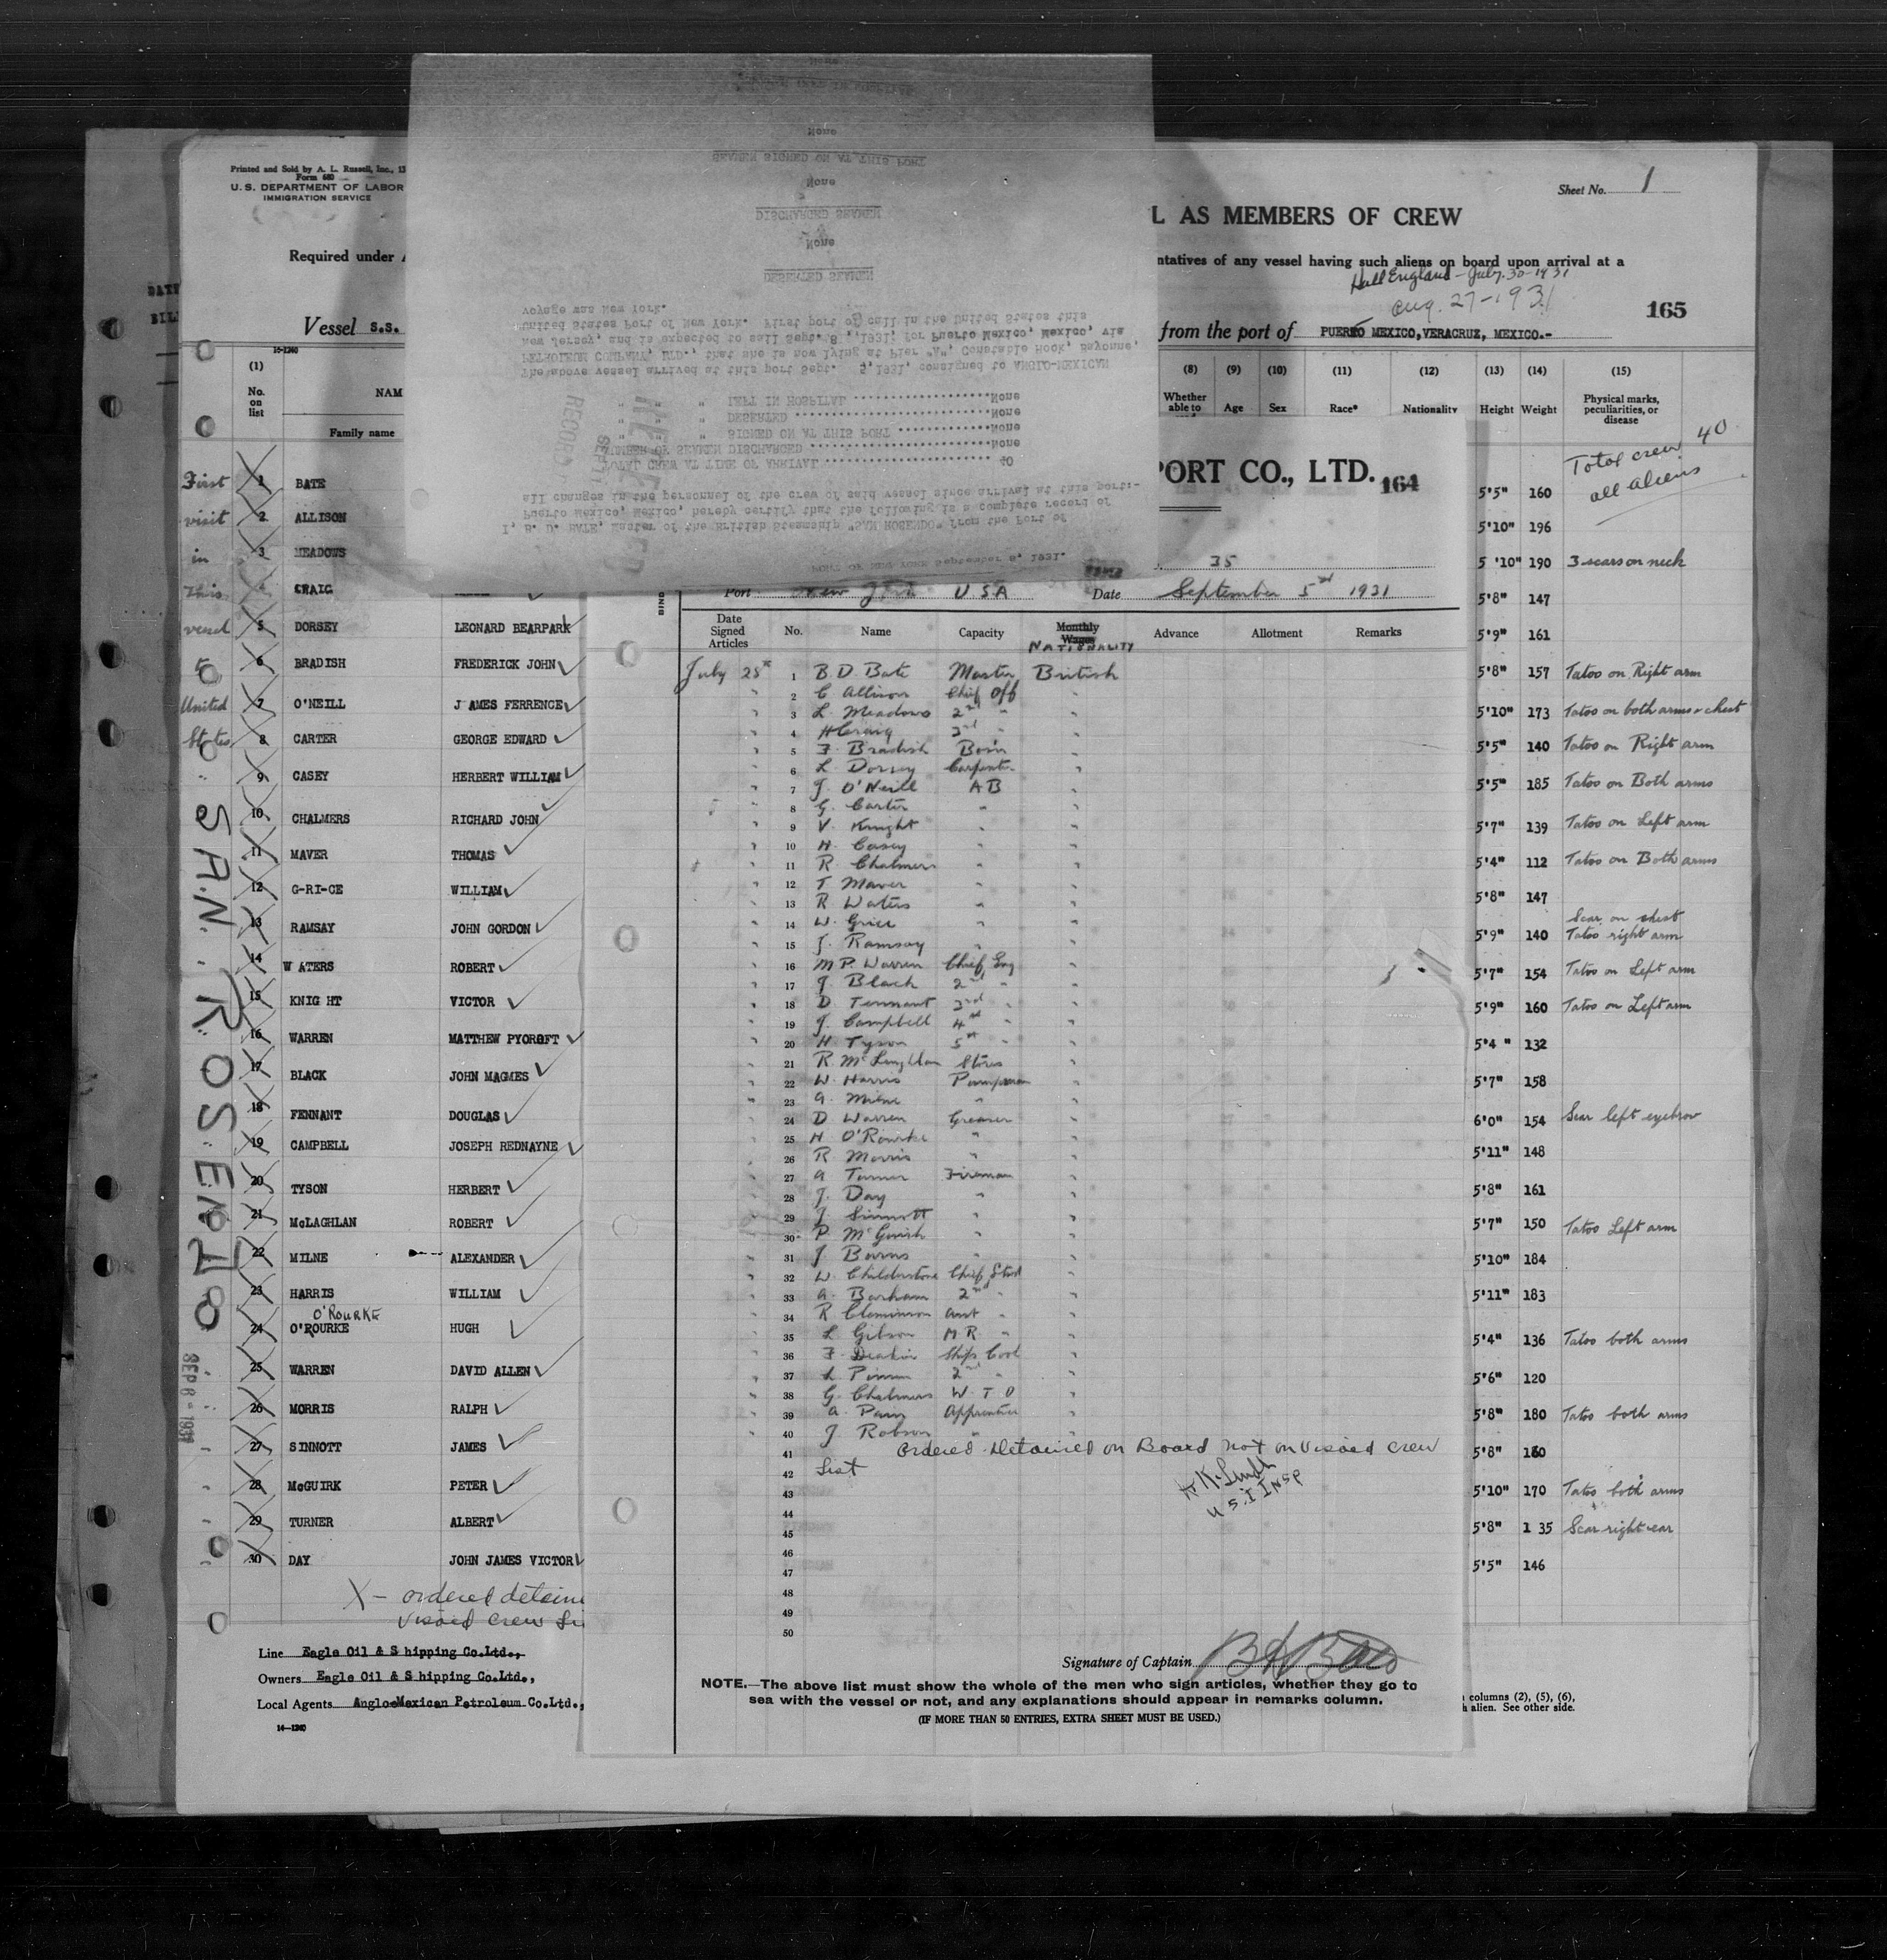 Printed and Sold by A. L. Russell, Inc., 13
Form 680
U. S. DEPARTMENT OF LABOR
IMMIGRATION SERVICE
Sheet No. 1
L AS MEMBERS OF CREW
Required under A
ntatives of any vessel having such aliens on board upon arrival at a
Hull England - July. 30-1931
Aug. 27-1931
165
Vessel S.S.
from the port of PUERTO MEXICO, VERACRUZ, MEXICO.-
16-1240
(1) No. on list
NAM
Family name
(8) Whether able to
(9) Age
(10) Sex
(11) Race*
(12) Nationality
(13) Height
(14) Weight
(15) Physical marks, peculiarities, or disease
Total crew 40
all aliens
First visit in this vessel to United States
SAN. ROSENDO
SEP 8 - 1931
1 BATE
2 ALLISON
3 MEADOWS
4 CRAIG
5 DORSEY LEONARD BEARPARK
6 BRADISH FREDERICK JOHN
7 O'NEILL J AMES FERRENCE
8 CARTER GEORGE EDWARD
9 CASEY HERBERT WILLIAM
10 CHALMERS RICHARD JOHN
11 MAVER THOMAS
12 G-RI-CE WILLIAM
13 RAMSAY JOHN GORDON
14 W ATERS ROBERT
15 KNIG HT VICTOR
16 WARREN MATTHEW PYOROFT
17 BLACK JOHN MAGMES
18 FENNANT DOUGLAS
19 CAMPBELL JOSEPH REDNAYNE
20 TYSON HERBERT
21 McLAGHLAN ROBERT
22 MILNE ALEXANDER
23 HARRIS WILLIAM
O'ROURKE
24 O'ROURKE HUGH
25 WARREN DAVID ALLEN
26 MORRIS RALPH
27 SINNOTT JAMES
28 McGUIRK PETER
29 TURNER ALBERT
30 DAY JOHN JAMES VICTOR
X - ordered detaine
visaed crew Li
Line Eagle Oil & S hipping Co.Ltd.,
Owners Eagle Oil & S hipping Co.Ltd.,
Local Agents Anglo-Mexican Petroleum Co.Ltd.,
14-1240
PORT OF NEW YORK September 8, 1931.
I, B. D. BATE, Master of the British Steamship "SAN ROSENDO" from the Port of
Puerto Mexico, Mexico, hereby certify that the following is a complete record of
all changes in the personnel of the crew of said vessel since arrival at this port:-
TOTAL CREW AT TIME OF ARRIVAL 40
NUMBER OF SEAMEN DISCHARGED None
" " " SIGNED ON AT THIS PORT None
" " " DESERTED None
" " " LEFT IN HOSPITAL None
The above vessel arrived at this port Sept. 5, 1931, consigned to ANGLO-MEXICAN
PETROLEUM COMPANY, LTD., that she is now lying at Pier "A", Constable Hook, Bayonne,
New Jersey, and is expected to sail Sept. 8, 1931, for Puerto Mexico, Mexico, via
United States Port of New York. First port of call in the United States this
voyage was New York.
DESERTED SEAMEN
None
DISCHARGED SEAMEN
None
SEAMEN SIGNED ON AT THIS PORT
None
None
RECORD
PORT CO., LTD. 164
35
Port New York USA Date September 5th 1931
Date Signed Articles
No.
Name
Capacity
Monthly Wages
NATIONALITY
Advance
Allotment
Remarks
July 28th 1 B. D. Bate Master British
" 2 C Allison Chief Off "
" 3 L. Meadows 2nd " "
" 4 H Craig 3rd " "
" 5 F. Bradish Bosn "
" 6 L. Dorsey Carpenter "
" 7 J. O'Neill AB "
" 8 G. Carter " "
" 9 V. Knight " "
" 10 H. Casey " "
" 11 R. Chalmers " "
" 12 T Maver " "
" 13 R Waters " "
" 14 W. Grice " "
" 15 J. Ramsay " "
" 16 M P. Warren Chief Eng "
" 17 J Black 2nd " "
" 18 D Tennant 3rd " "
" 19 J. Campbell 4th " "
" 20 H Tyson 5th " "
" 21 R. McLaughlan Stores "
" 22 W. Harris Pumpman "
" 23 A. Milne " "
" 24 D Warren Greaser "
" 25 H O'Rourke " "
" 26 R Morris " "
" 27 A Turner Fireman "
" 28 J. Day " "
" 29 J. Sinnott " "
" 30 P. McGuirk " "
" 31 J Burns " "
" 32 W. Childerstone Chief Stwd "
" 33 A. Barham 2nd " "
" 34 R Cleminson Asst " "
" 35 L Gibson M R "
" 36 F. Deakin Ships Cook "
" 37 2nd " "
" 38 G. Chalmers W. T O "
" 39 A. Apprentice "
" 40 J Robson " "
41 Ordered Detained on Board not on Visaed Crew
42 List
43
44
45
46
47
48
49
50
U.S.I Insp
Signature of Captain
NOTE.—The above list must show the whole of the men who sign articles, whether they go to
sea with the vessel or not, and any explanations should appear in remarks column.
(IF MORE THAN 50 ENTRIES, EXTRA SHEET MUST BE USED.)
5'5" 160
5'10" 196
5'10" 190 3 scars on neck
5'8" 147
5'9" 161
5'8" 157 Tatoo on Right arm
5'10" 173 Tatoo on both arms & chest
5'5" 140 Tatoo on Right arm
5'5" 185 Tatoo on Both arms
5'7" 139 Tatoo on Left arm
5'4" 112 Tatoo on Both arms
5'8" 147
Scar on chest
5'9" 140 Tatoo right arm
5'7" 154 Tatoo on Left arm
5'9" 160 Tatoo on Left arm
5'4" 132
5'7" 158
6'0" 154 Scar left eyebrow
5'11" 148
5'8" 161
5'7" 150 Tatoo Left arm
5'10" 184
5'11" 183
5'4" 136 Tatoo both arms
5'6" 120
5'8" 180 Tatoo both arms
5'8" 160
5'10" 170 Tatoo both arms
5'8" 1 35 Scar right ear
5'5" 146
columns (2), (5), (6),
alien. See other side.